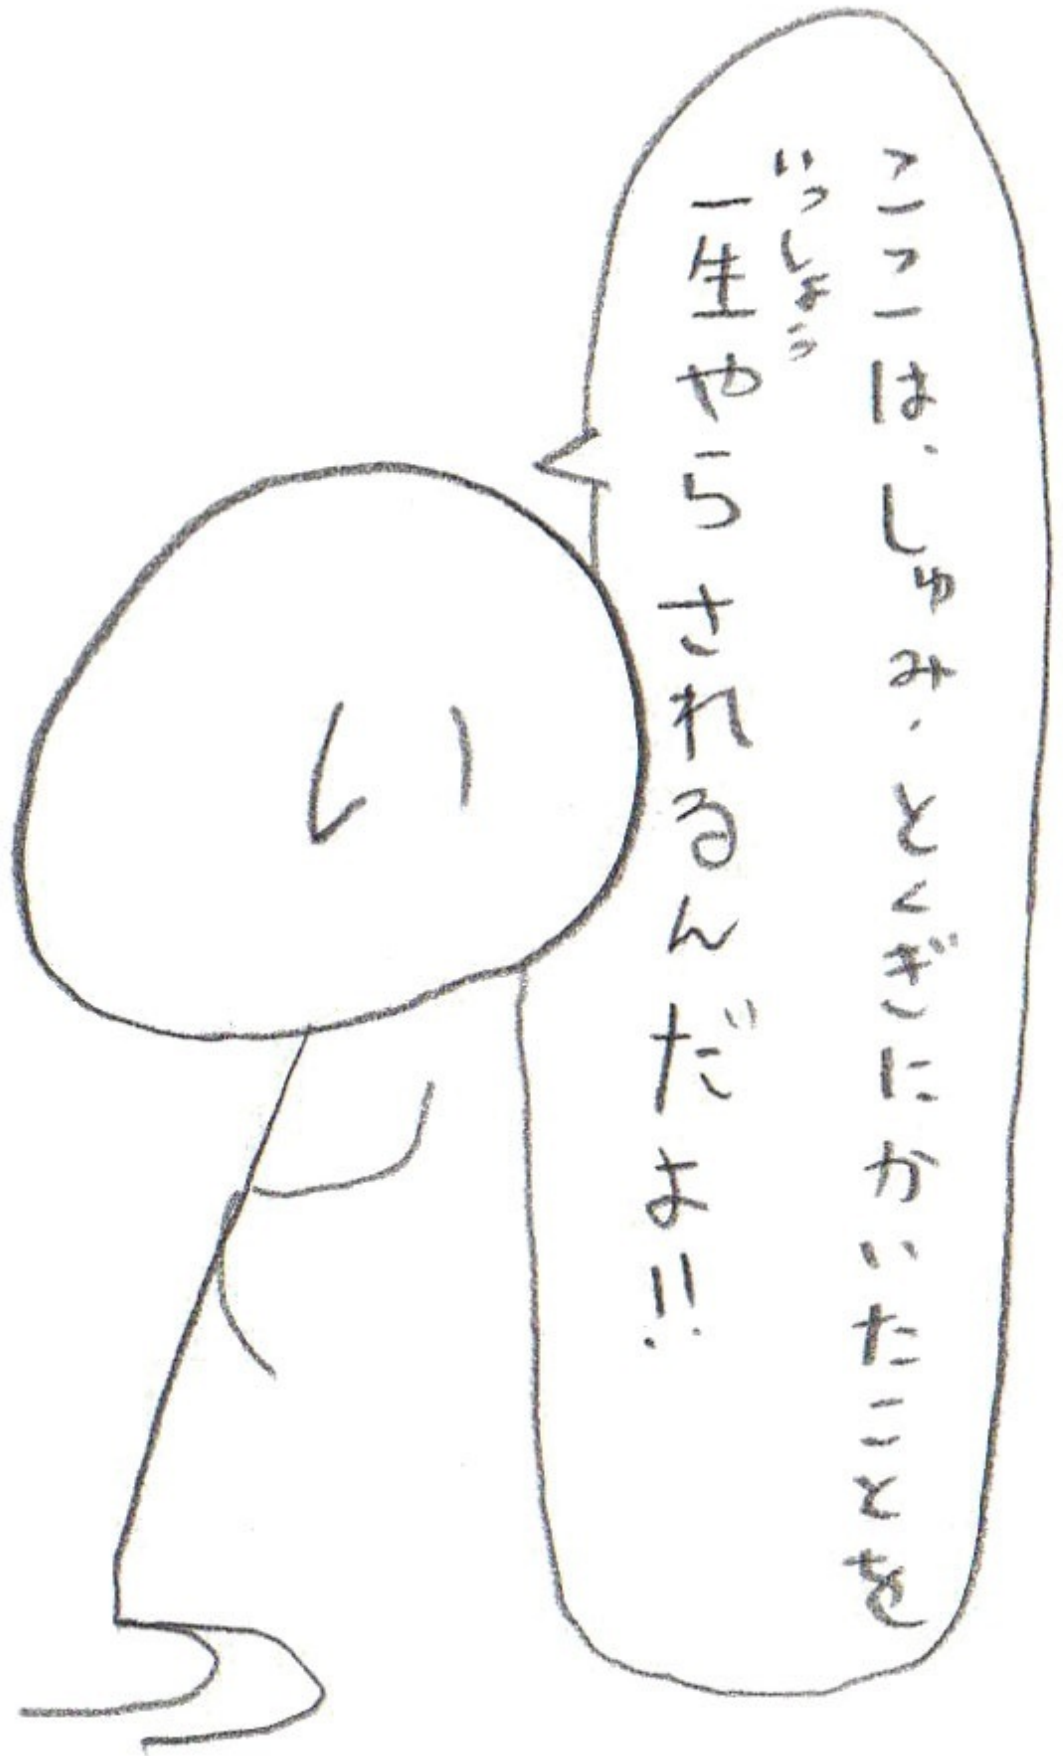 ここは、しゅみ・とくぎにかいたことを
いっしょう
一生やらされるんだよ!!